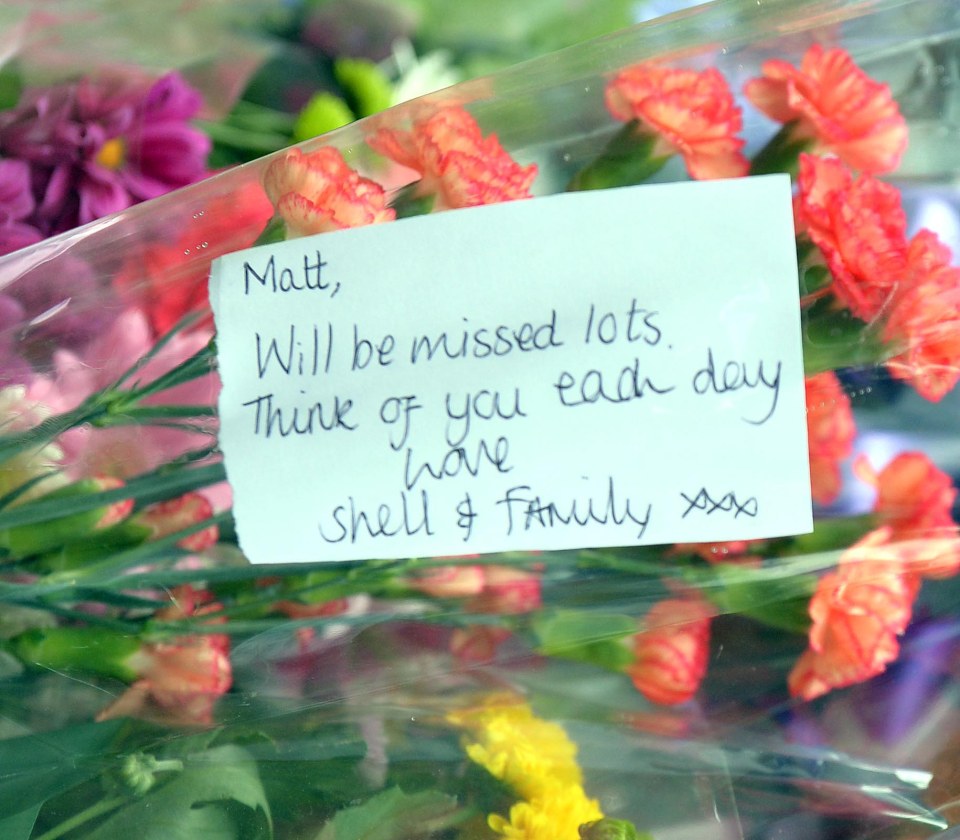 Matt,
Will be missed lots.
Think of you each day
Love
Shell & Family xxx